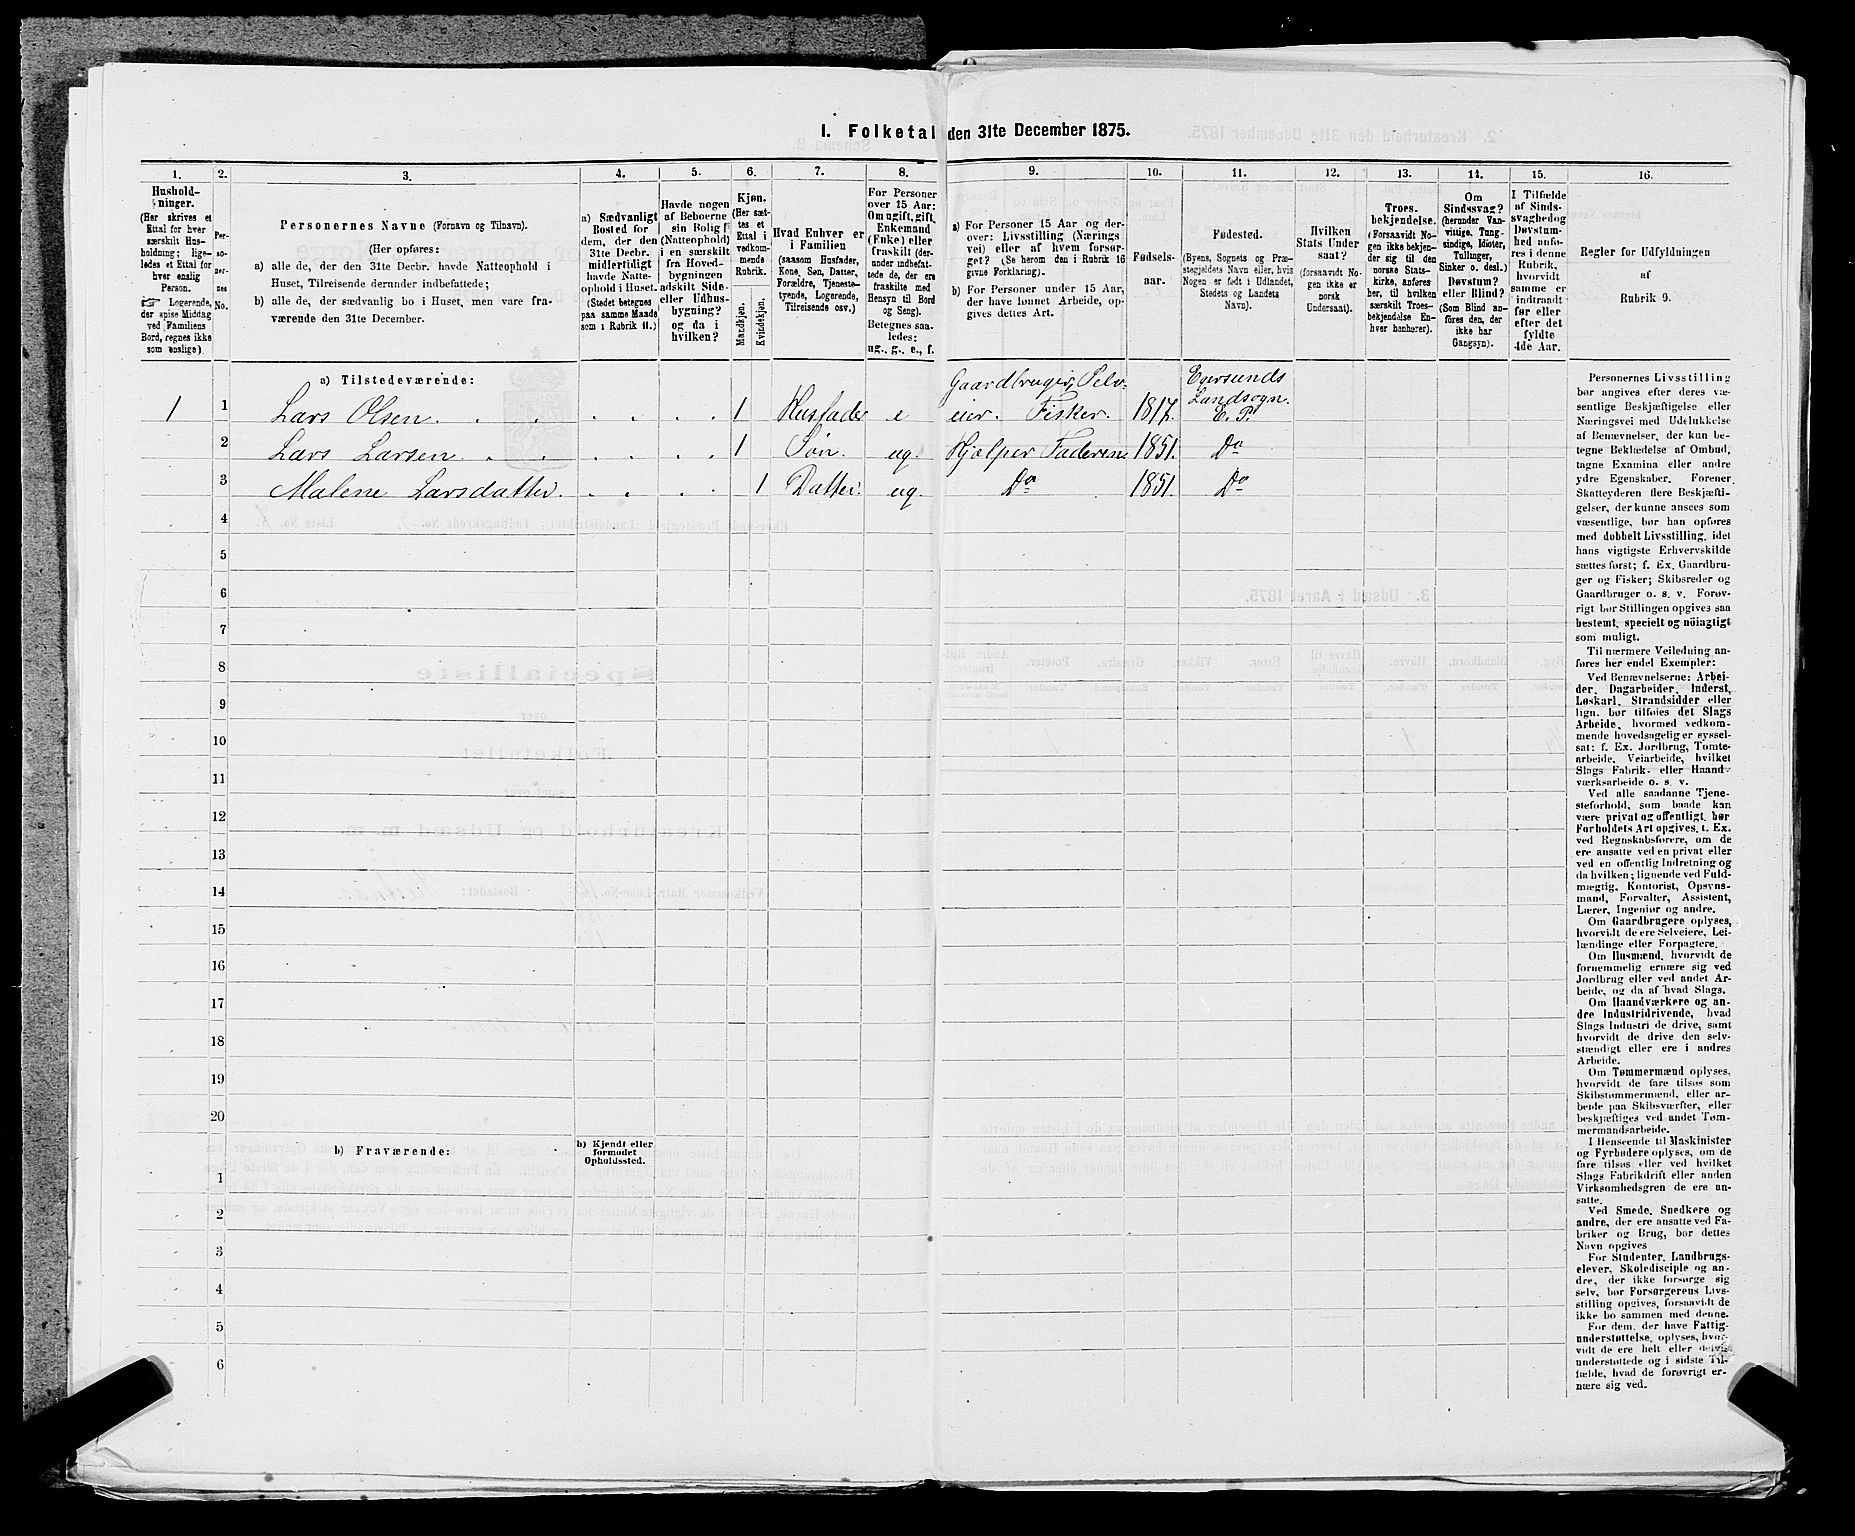 I. Folketal den 31te December 1875.
1.
Hushold-
ninger.
(Her skrives et
Ettal for hver
særskilt Hus-
holdning; lige-
ledes et Ettal for
hver enslig
Person.
☞ Logerende,
der spise Middag
ved Familiens
Bord, regnes ikke
som enslige).
2.
Per-
so-
ner-
nes
No.
3.
Personernes Navne (Fornavn og Tilnavn).
(Her opføres:
a) alle de, der den 31te Decbr. havde Natteophold i
Huset, Tilreisende derunder indbefattede;
b) alle de, der sædvanlig bo i Huset, men vare fra-
værende den 31te December.
4.
a) Sædvanligt
Bosted for
dem, der den
31te Decbr.
midlertidigt
havde Natte-
ophold i Huset.
(Stedet betegnes
paa samme Maade
som i Rubrik 11.)
5.
Havde nogen
af Beboerne
sin Bolig
(Natteophold)
i en særskilt
fra Hoved-
bygningen
adskilt Side-
eller Udhus-
bygning?
og da i
hvilken?
6.
Kjøn.
(Her sæt-
tes et
Ettal i
vedkom-
mende
Rubrik.
Mandkjøn.
Kvindekjøn.
7.
Hvad Enhver er
i Familien
(saasom Husfader,
Kone, Søn, Datter,
Forældre, Tjeneste-
tyende, Logerende,
Tilreisende osv.)
8.
For Personer
over 15 Aar:
Om ugift, gift,
Enkemand
(Enke) eller
fraskilt (der-
under indbefat-
tede de, der ere
fraskilte med
Hensyn til Bord
og Seng).
Betegnes saa-
ledes:
ug., g., e., f.
9.
a) For Personer 15 Aar og der-
over: Livsstilling (Nærings-
vei) eller af hvem forsør-
get? (Se herom den i Rubrik 16
givne Forklaring).
b) For Personer under 15 Aar,
der have lønnet Arbeide, op-
gives dettes Art.
10.
Fødsels-
aar.
11.
Fødested.
(Byens, Sognets og Præ-
stegjeldets Navn eller, hvis
Nogen er født i Udlandet,
Stedets og Landets
Navn).
12.
Hvilken
Stats Under
saat?
(forsaavidt No-
gen ikke er
norsk
Undersaat).
13.
Troes-
bekjendelse.
(Forsaavidt No-
gen ikke bekjen-
der sig til den
norske Stats-
kirke, anføres
her, til hvilken
særskilt Troes-
bekjendelse En-
hver henhører).
14.
Om
Sindssvag?
(herunder Van-
vittige, Tung-
sindige, Idioter,
Tullinger,
Sinker o. desl.)
Døvstum?
eller Blind?
(Som Blind an-
føres den, der
ikke har
Gangsyn).
15.
I Tilfælde
af Sinds-
svaghed og
Døvstum-
hed anfø-
res i denne
Rubrik,
hvorvidt
samme er
indtraadt
før eller
efter det
fyldte
4de Aar.
16.
Regler for Udfyldningen
af
Rubrik 9.
a) Tilstedeværende:
1 1 Lars Olsen. 1 Husfader e Gaardbruger, Selv-
eier. Fisker. 1817. Egersunds
Landsogn.
E. P.
2 Lars Larsen 1 Søn. ug. Hjælper Faderen 1851. Do
3 Malene Larsdatter. 1 Datter. ug. Do 1851. Do
4
5
6
7
8
9
10
11
12
13
14
15
16
17
18
19
20
b) Fraværende:
b) Kjendt eller
formodet
Opholdssted.
1
2
3
4
5
6
Personernes Livsstilling
bør angives efter deres væ-
sentlige Beskjæftigelse eller
Næringsvei med Udelukkelse
af Benævnelser, der kun be-
tegne Beklædelse af Ombud,
tagne Examina eller andre
ydre Egenskaber. Forener
Skatteyderen flere Beskjæfti-
gelser, der kunne ansees som
væsentlige, bør han opføres
med dobbelt Livsstilling, idet
hans vigtigste Erhvervskilde
sættes først; f. Ex. Gaardbru-
ger og Fisker; Skibsreder og
Gaardbruger o. s. v. Forøv-
rigt bør Stillingen opgives saa
bestemt, specielt og nøiagtigt
som muligt.
Til nærmere Veiledning an-
føres her endel Exempler:
Ved Benævnelserne: Arbei-
der, Dagarbeider, Inderst,
Løskarl, Strandsidder eller
lign. bør tilføies det Slags
Arbeide, hvormed vedkom-
mende hovedsagelig er syssel-
sat; f. Ex. Jordbrug, Tomte-
arbeide, Veiarbeide, hvilket
Slags Fabrik- eller Haand-
værksarbeide o. s. v.
Ved alle saadanne Tjene-
steforhold, som baade kan
være privat og offentligt, bør
Forholdets Art opgives, t. Ex.
ved Regnskabsførere, om de
ere ansatte ved en privat eller
ved en offentlig Indretning og
da hvilken; lignende ved Fuld-
mægtig, Kontorist, Opsyns-
mand, Forvalter, Assistent,
Lærer, Ingeniør og andre.
Om Gaardbrugere oplyses,
hvorvidt de ere Selveiere, Lei-
lændinge eller Forpagtere.
Om Husmænd, hvorvidt de
fornemmelig ernære sig ved
Jordbrug eller ved andet Ar-
beide, og da af hvad Slags.
Om Haandværkere og an-
dre Industridrivende, hvad
Slags Industri de drive, samt
hvorvidt de drive den selv-
stændigt eller ere i andres
Arbeide.
Om Tømmermænd oplyses,
hvorvidt de fare tilsøs som
Skibstømmermænd, eller ar-
beide paa Skibsværfter, eller
beskjæftiges ved andet Tøm-
mermandsarbeide.
I Henseende til Maskinister
og Fyrbødere oplyses, om de
fare tilsøs eller ved hvilket
Slags Fabrikdrift eller anden
Virksomhedsgren de ere an-
satte.
Ved Smede, Snedkere og
andre, der ere ansatte ved Fa-
briker og Brug, bør dettes
Navn opgives
For Studenter, Landbrugs-
elever, Skoledisciple og an-
dre, der ikke forsørge sig
selv, bør Forsørgerens Livs-
stilling opgives, forsaavidt de
ikke bo sammen med denne.
For dem, der have Fattig-
understøttelse, oplyses, hvor-
vidt de ere helt eller delvis
understøttede og i sidste Til-
fælde, hvad de forøvrigt er-
nære sig ved.